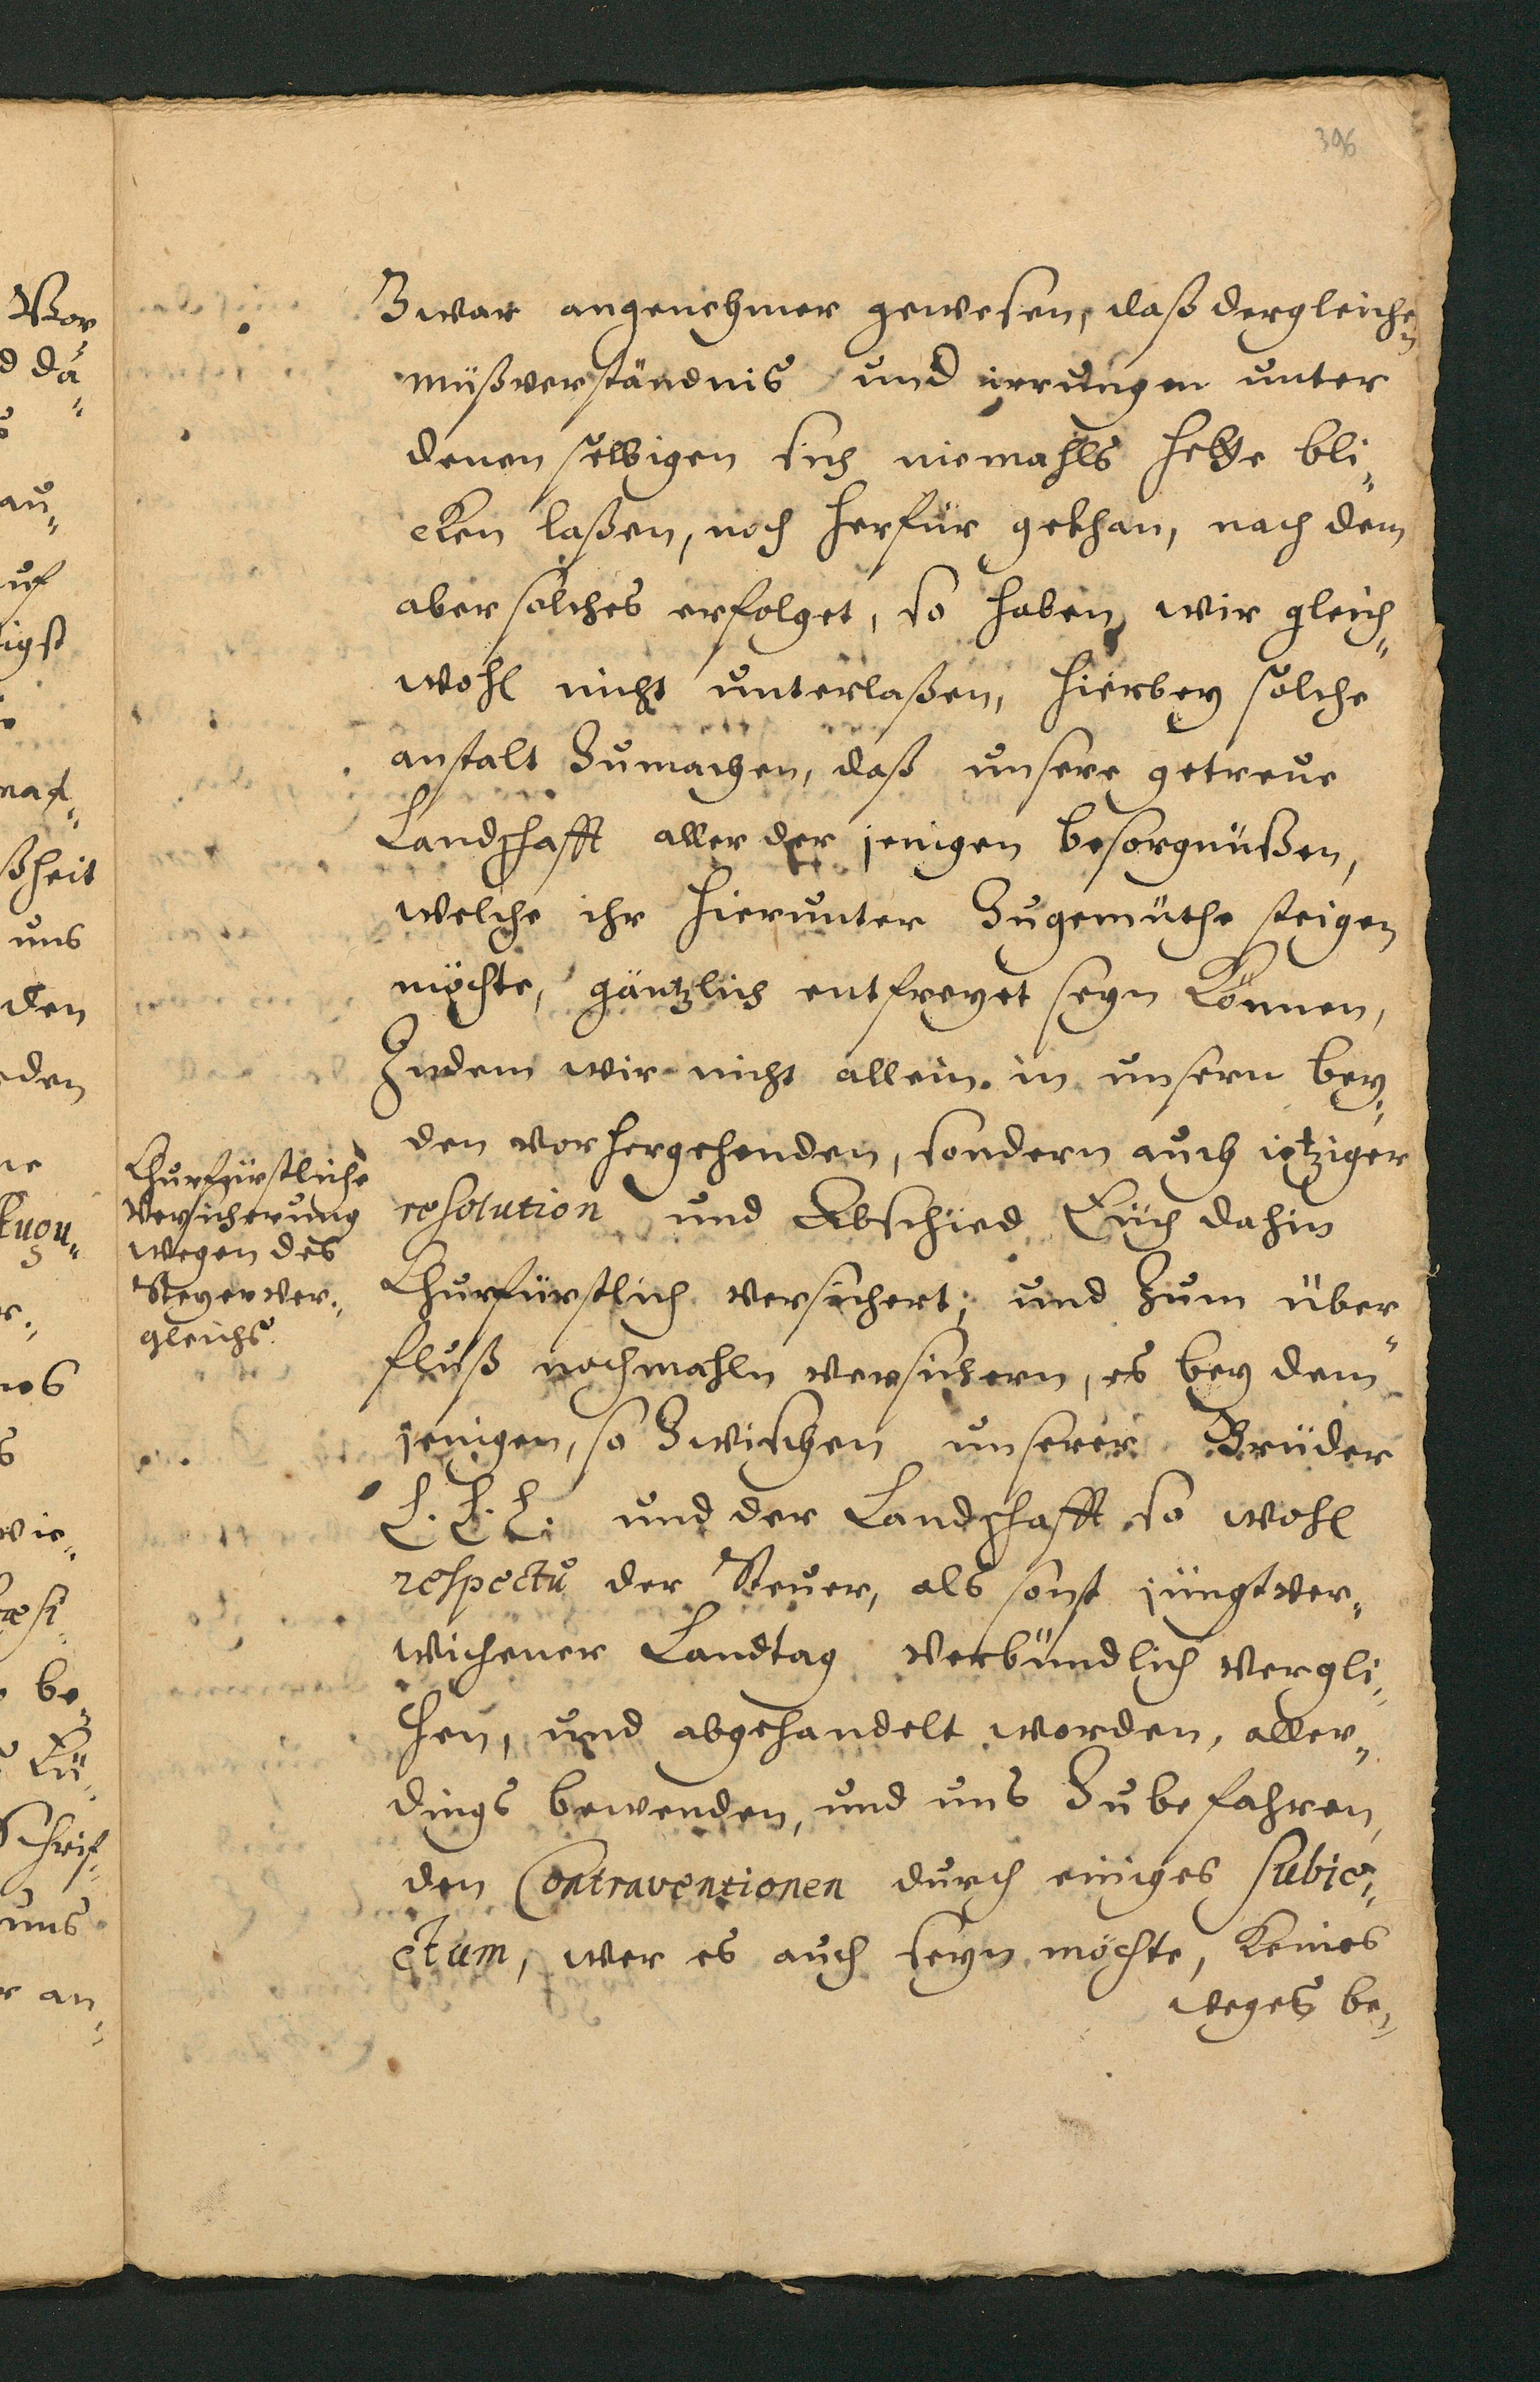 396
Zwar angenehmer gewesen, daß dergleichen
müßverständnis und irrungen unter
denenselbigen sich niemahls hette bli„
cken laßen, noch herfür gethan, nach dem
aber solches erfolget, so haben wir gleich„
wohl nicht unterlaßen, hierbey solche
anstalt Zumachen, daß unsere getreue
Landschafft aller der jenigen besorgnüßen,
welche ihr hierunter Zugemüthe steigen
möchte, gäntzlich entfreyet seyn können,
Indem wir nicht allein in unsern bey„
den vorhergehenden, sondern auch itziger
resolution und Abschied Euch dahin
Churfürstlich versichert, und Zum über„
fluß nochmahln versichern, es bey dem„
jenigen, so Zwischen unserer Brüder
L. L. L. und der Landschafft so wohl
respectu der Steuer, als sonst jüngstver„
wichener Landtag verbündlich vergli„
chen, und abgehandelt worden, aller„
dings bewenden, und uns Zubefahren,
den Contraventionen durch einiges subje„
ctum, wer es auch seyn möchte, keines
weges be„
Churfürstliche
Versicherung
wegen des
Steyerver„
gleichs.
Vor„
d da„
au„
uf
igst
ßheit
uns
den
eden
wie„
be„
Schrif„
uns
r an„